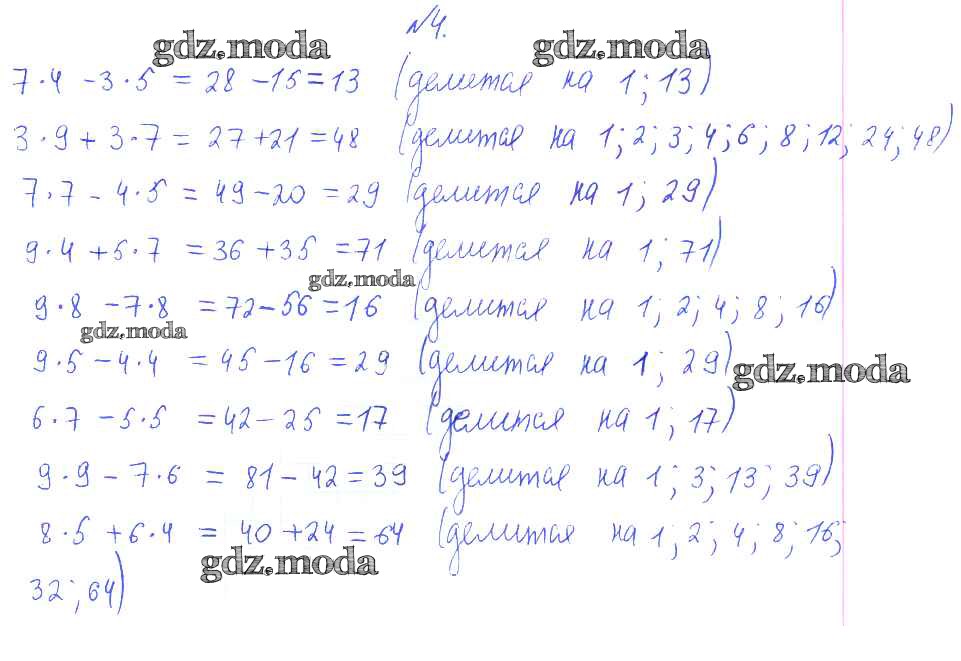 №4.
gdz.moda gdz.moda
7·4 -3·5 = 28 -15=13 (делится на 1; 13)
3·9 + 3·7 = 27+21 =48 (делится на 1; 2; 3; 4; 6; 8; 12; 24; 48)
7·7 - 4·5 = 49-20 =29 (делится на 1; 29)
9·4 +5·7 =36 +35 =71 (делится на 1; 71)
gdz.moda
9·8 -7·8 =72-56=16 (делится на 1; 2; 4; 8; 16)
gdz.moda
9·5 -4·4 =45-16 =29 (делится на 1; 29)
gdz.moda
6·7 -5·5 =42-25 =17 (делится на 1; 17)
9·9 - 7·6 = 81-42=39 (делится на 1; 3; 13; 39)
8·5 +6·4 = 40 +24 =64 (делится на 1; 2; 4; 8; 16;
gdz.moda
32; 64)